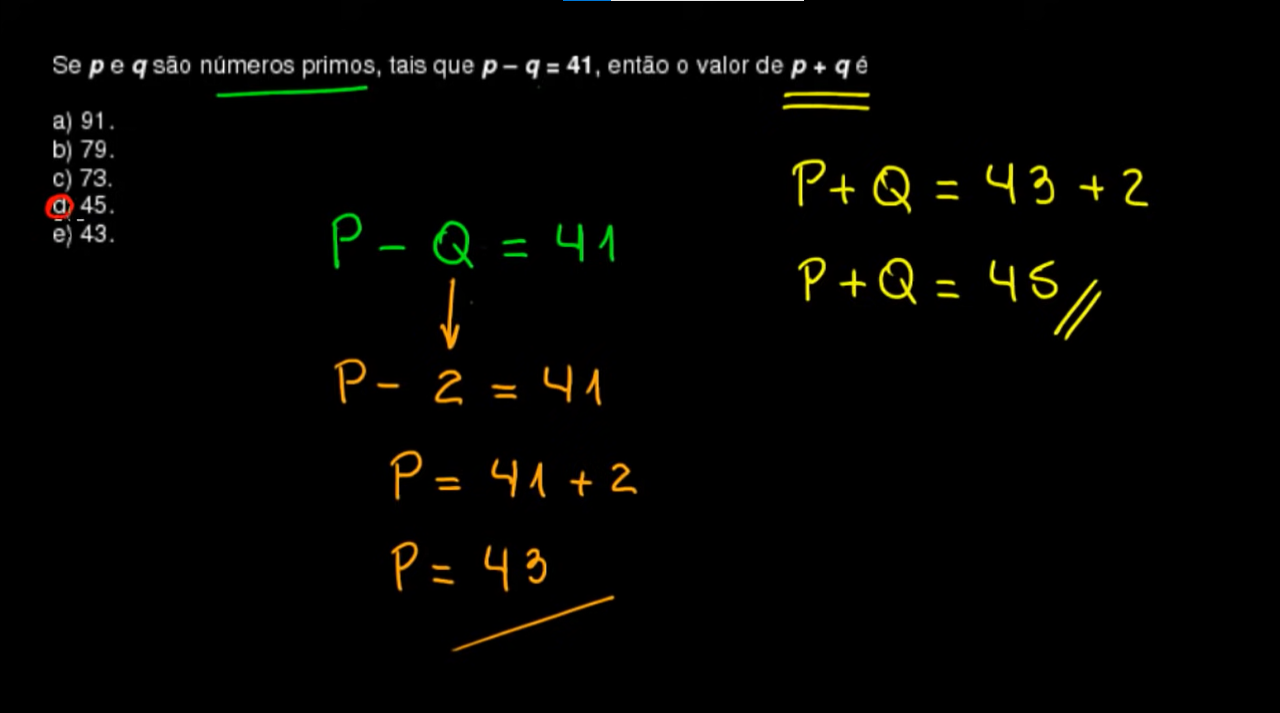 Se p e q são números primos, tais que p – q = 41, então o valor de p + q é
a) 91.
b) 79.
c) 73.
d) 45.
e) 43.
P - Q = 41
P - 2 = 41
P = 41 + 2
P = 43
P + Q = 43 + 2
P + Q = 45